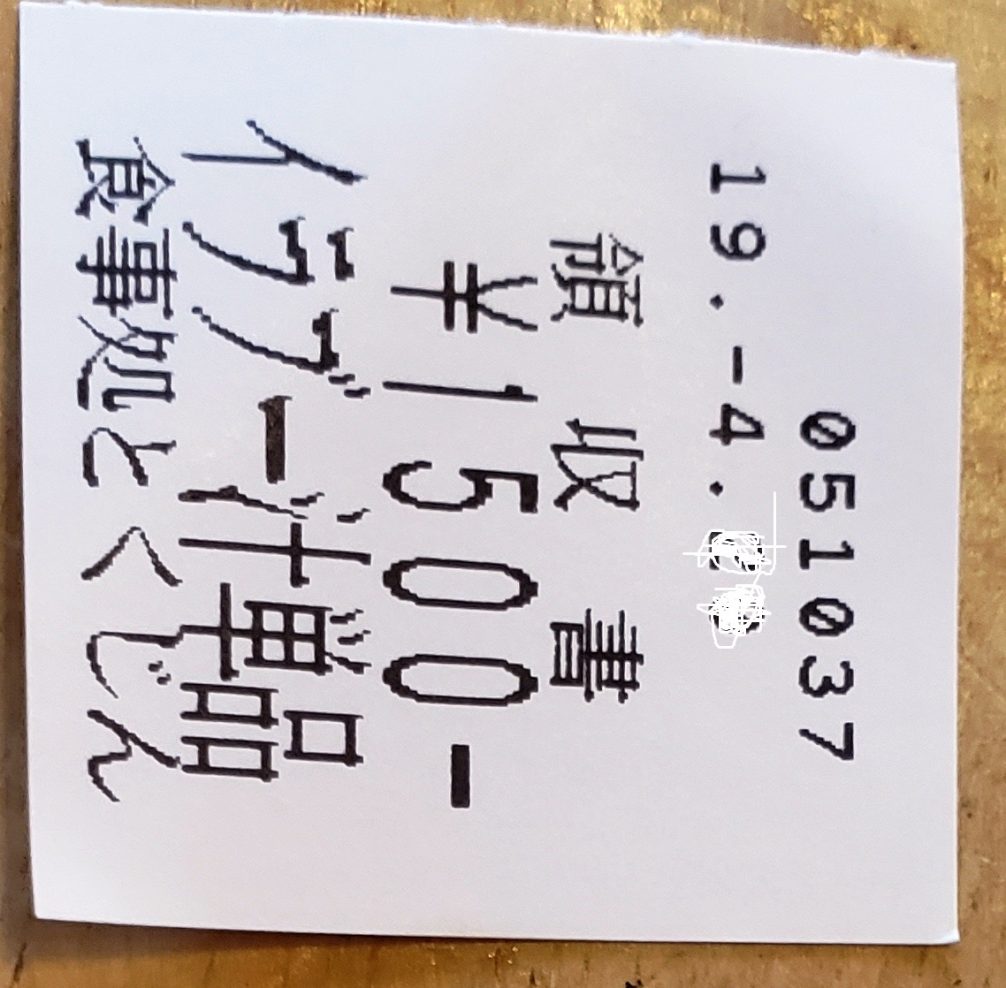 051037
19.-4.
領収書
¥1500-
イラブー汁単品
食事処とくじん